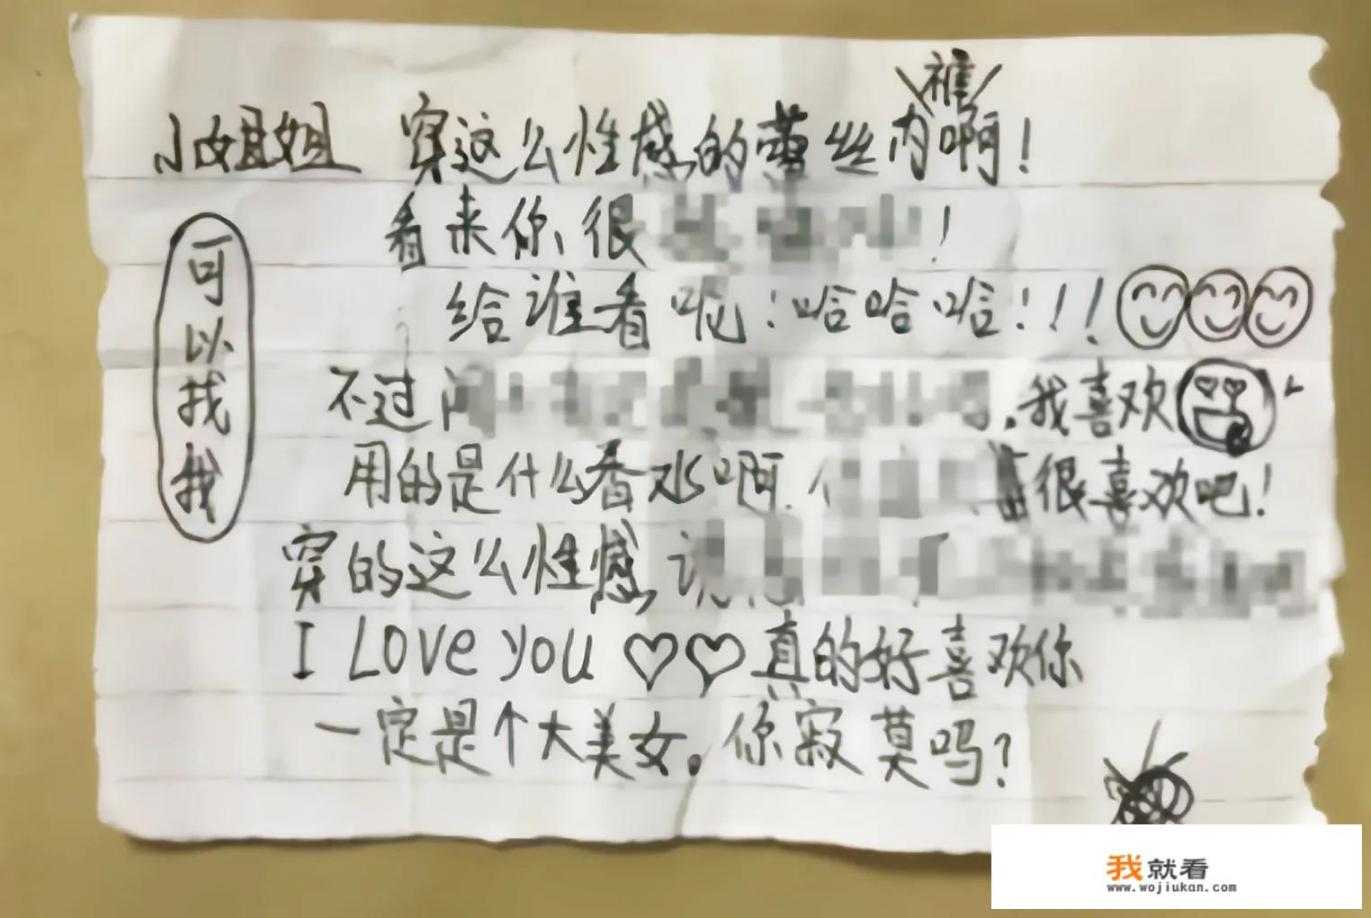 小姐姐 穿这么性感的蕾丝内裤啊！
看来你很 ！
给谁看呢！哈哈哈！！！
不过 ，我喜欢
用的是什么香水啊. 很喜欢吧！
穿的这么性感，
I Love you ♡♡真的好喜欢你
一定是个大美女。你寂莫吗？
可以找我
我就看
www.wojiukan.com